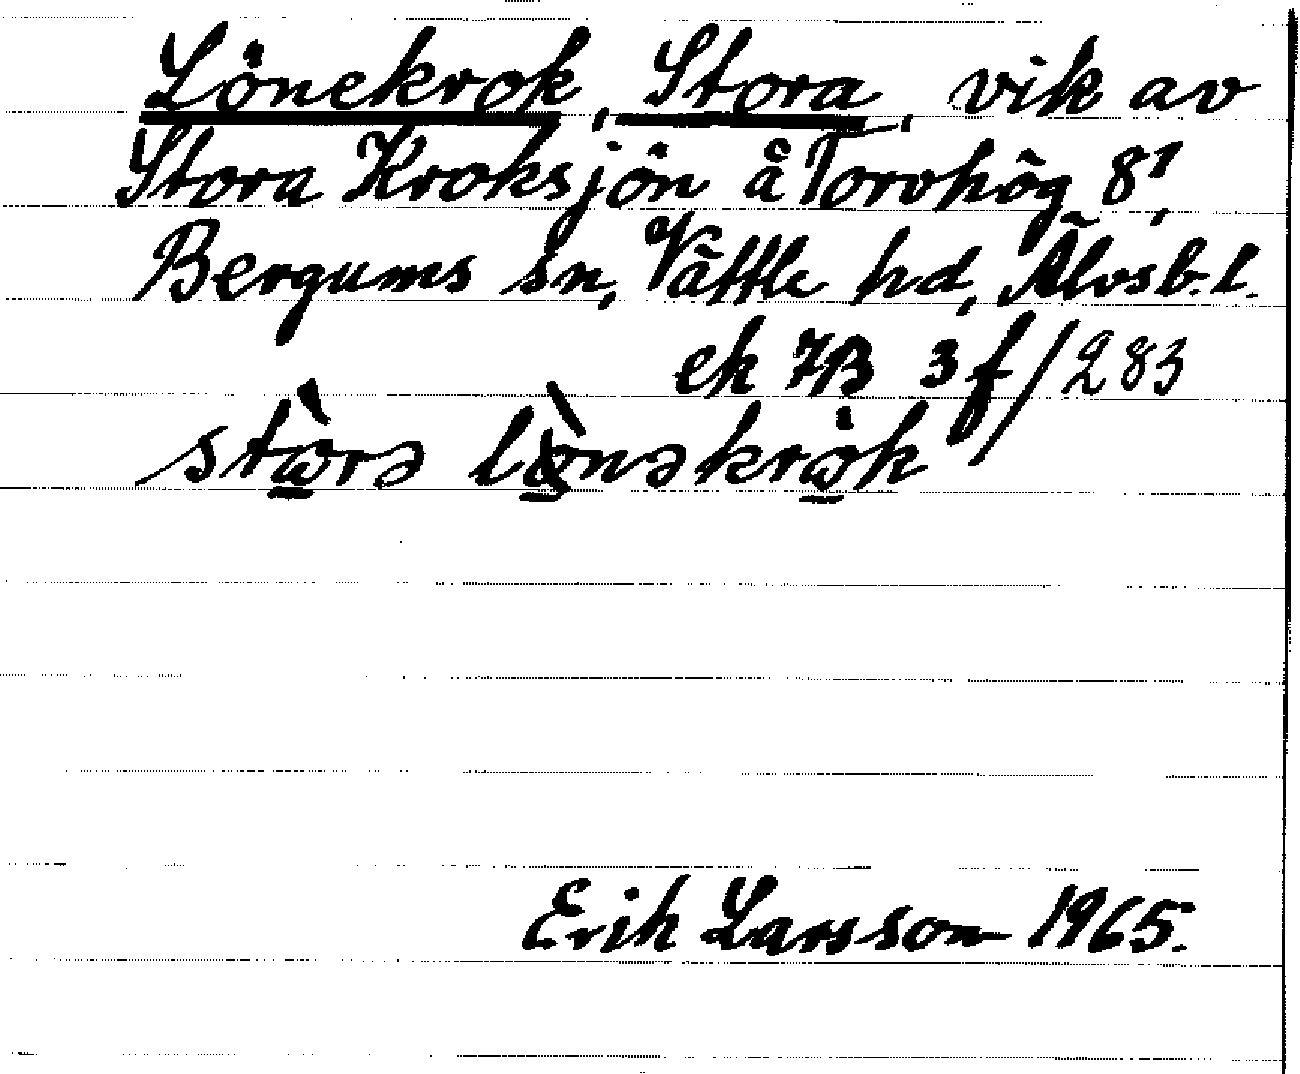 Lönekrok, Stora, vik av
Stora Kroksjön å Torvhög 8¹,
Bergums sn, Vättle hd, Älvsb. l.
ek 7B 3f/283
stὼrə lònəkrω̇k
Erik Larsson 1965.